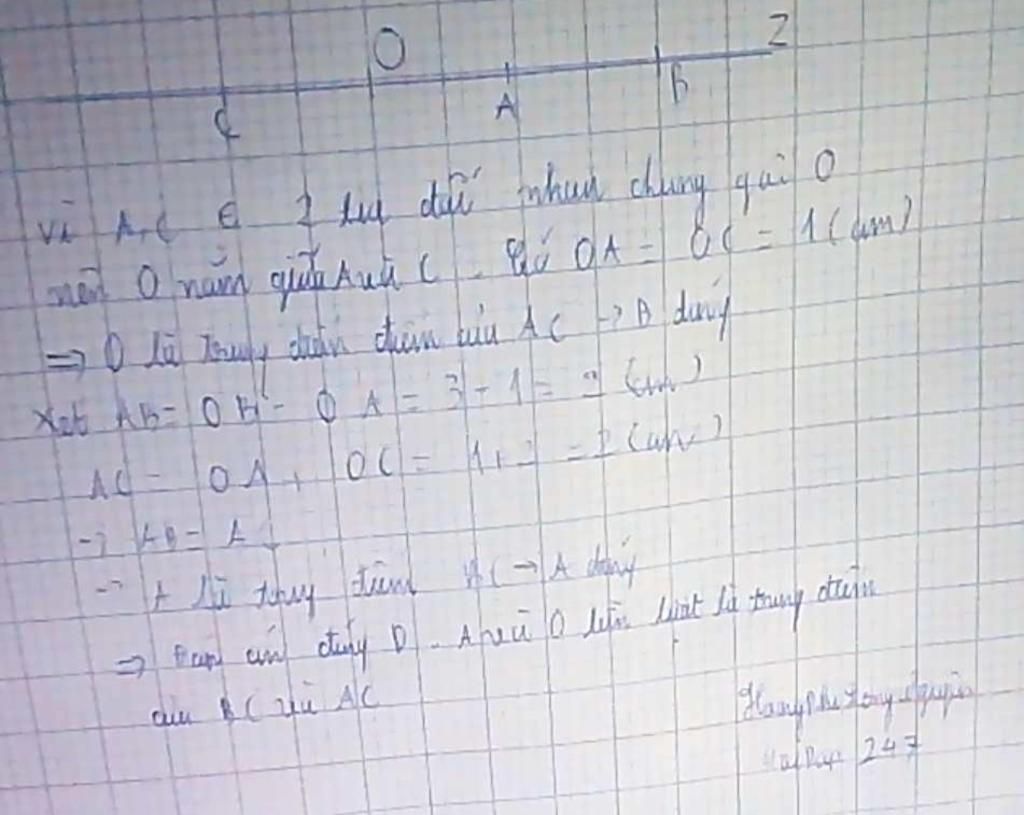 O Z
C A B
Vì A, C ∈ 2 tia đối nhau chung gốc O
nên O nằm giữa A và C. Có OA = OC = 1 (cm)
=> O là trung điểm của AC -> B đúng
Xét AB = OB - OA = 3 - 1 = 2 (cm)
AC = OA + OC = 1 + 1 = 2 (cm)
-> AB = A
-> A là trung điểm BC -> A đúng
=> Đáp án đúng D. A và O lần lượt là trung điểm
của BC và AC
247